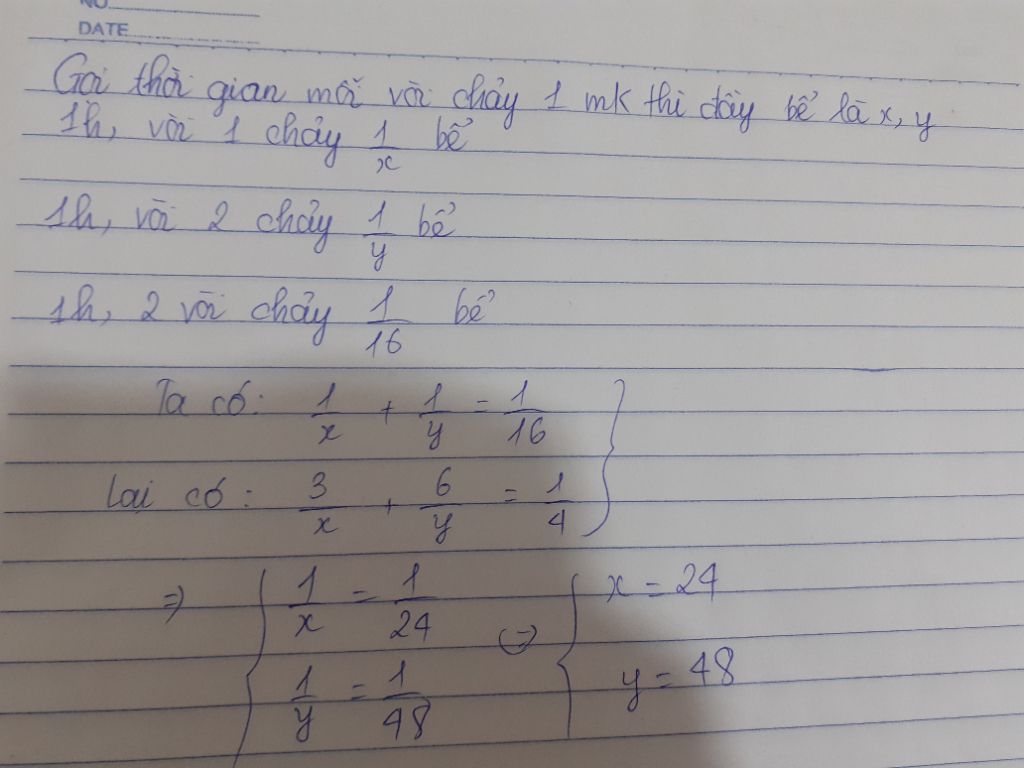 NO.
DATE
Gọi thời gian mỗi vòi chảy 1 mk thì đầy bể là x, y
1h, vòi 1 chảy 1/x bể
1h, vòi 2 chảy 1/y bể
1h, 2 vòi chảy 1/16 bể
Ta có: 1/x + 1/y = 1/16 }
Lại có: 3/x + 6/y = 1/4
=> { 1/x = 1/24 (=) { x = 24
1/y = 1/48 y = 48